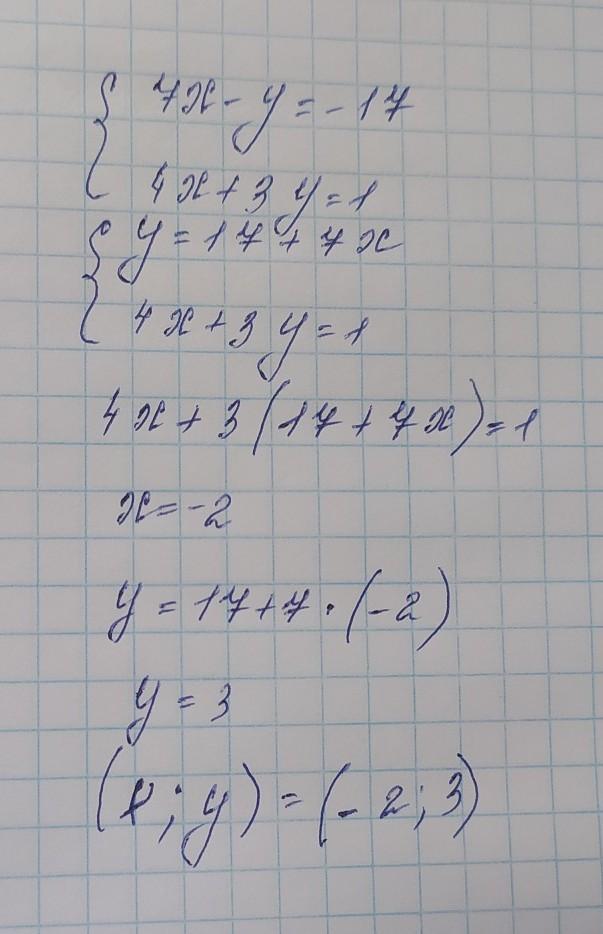 7x - y = -17
4x + 3y = 1
y = 17 + 7x
4x + 3y = 1
4x + 3(17 + 7x) = 1
x = -2
y = 17 + 7 · (-2)
y = 3
(x; y) = (-2; 3)